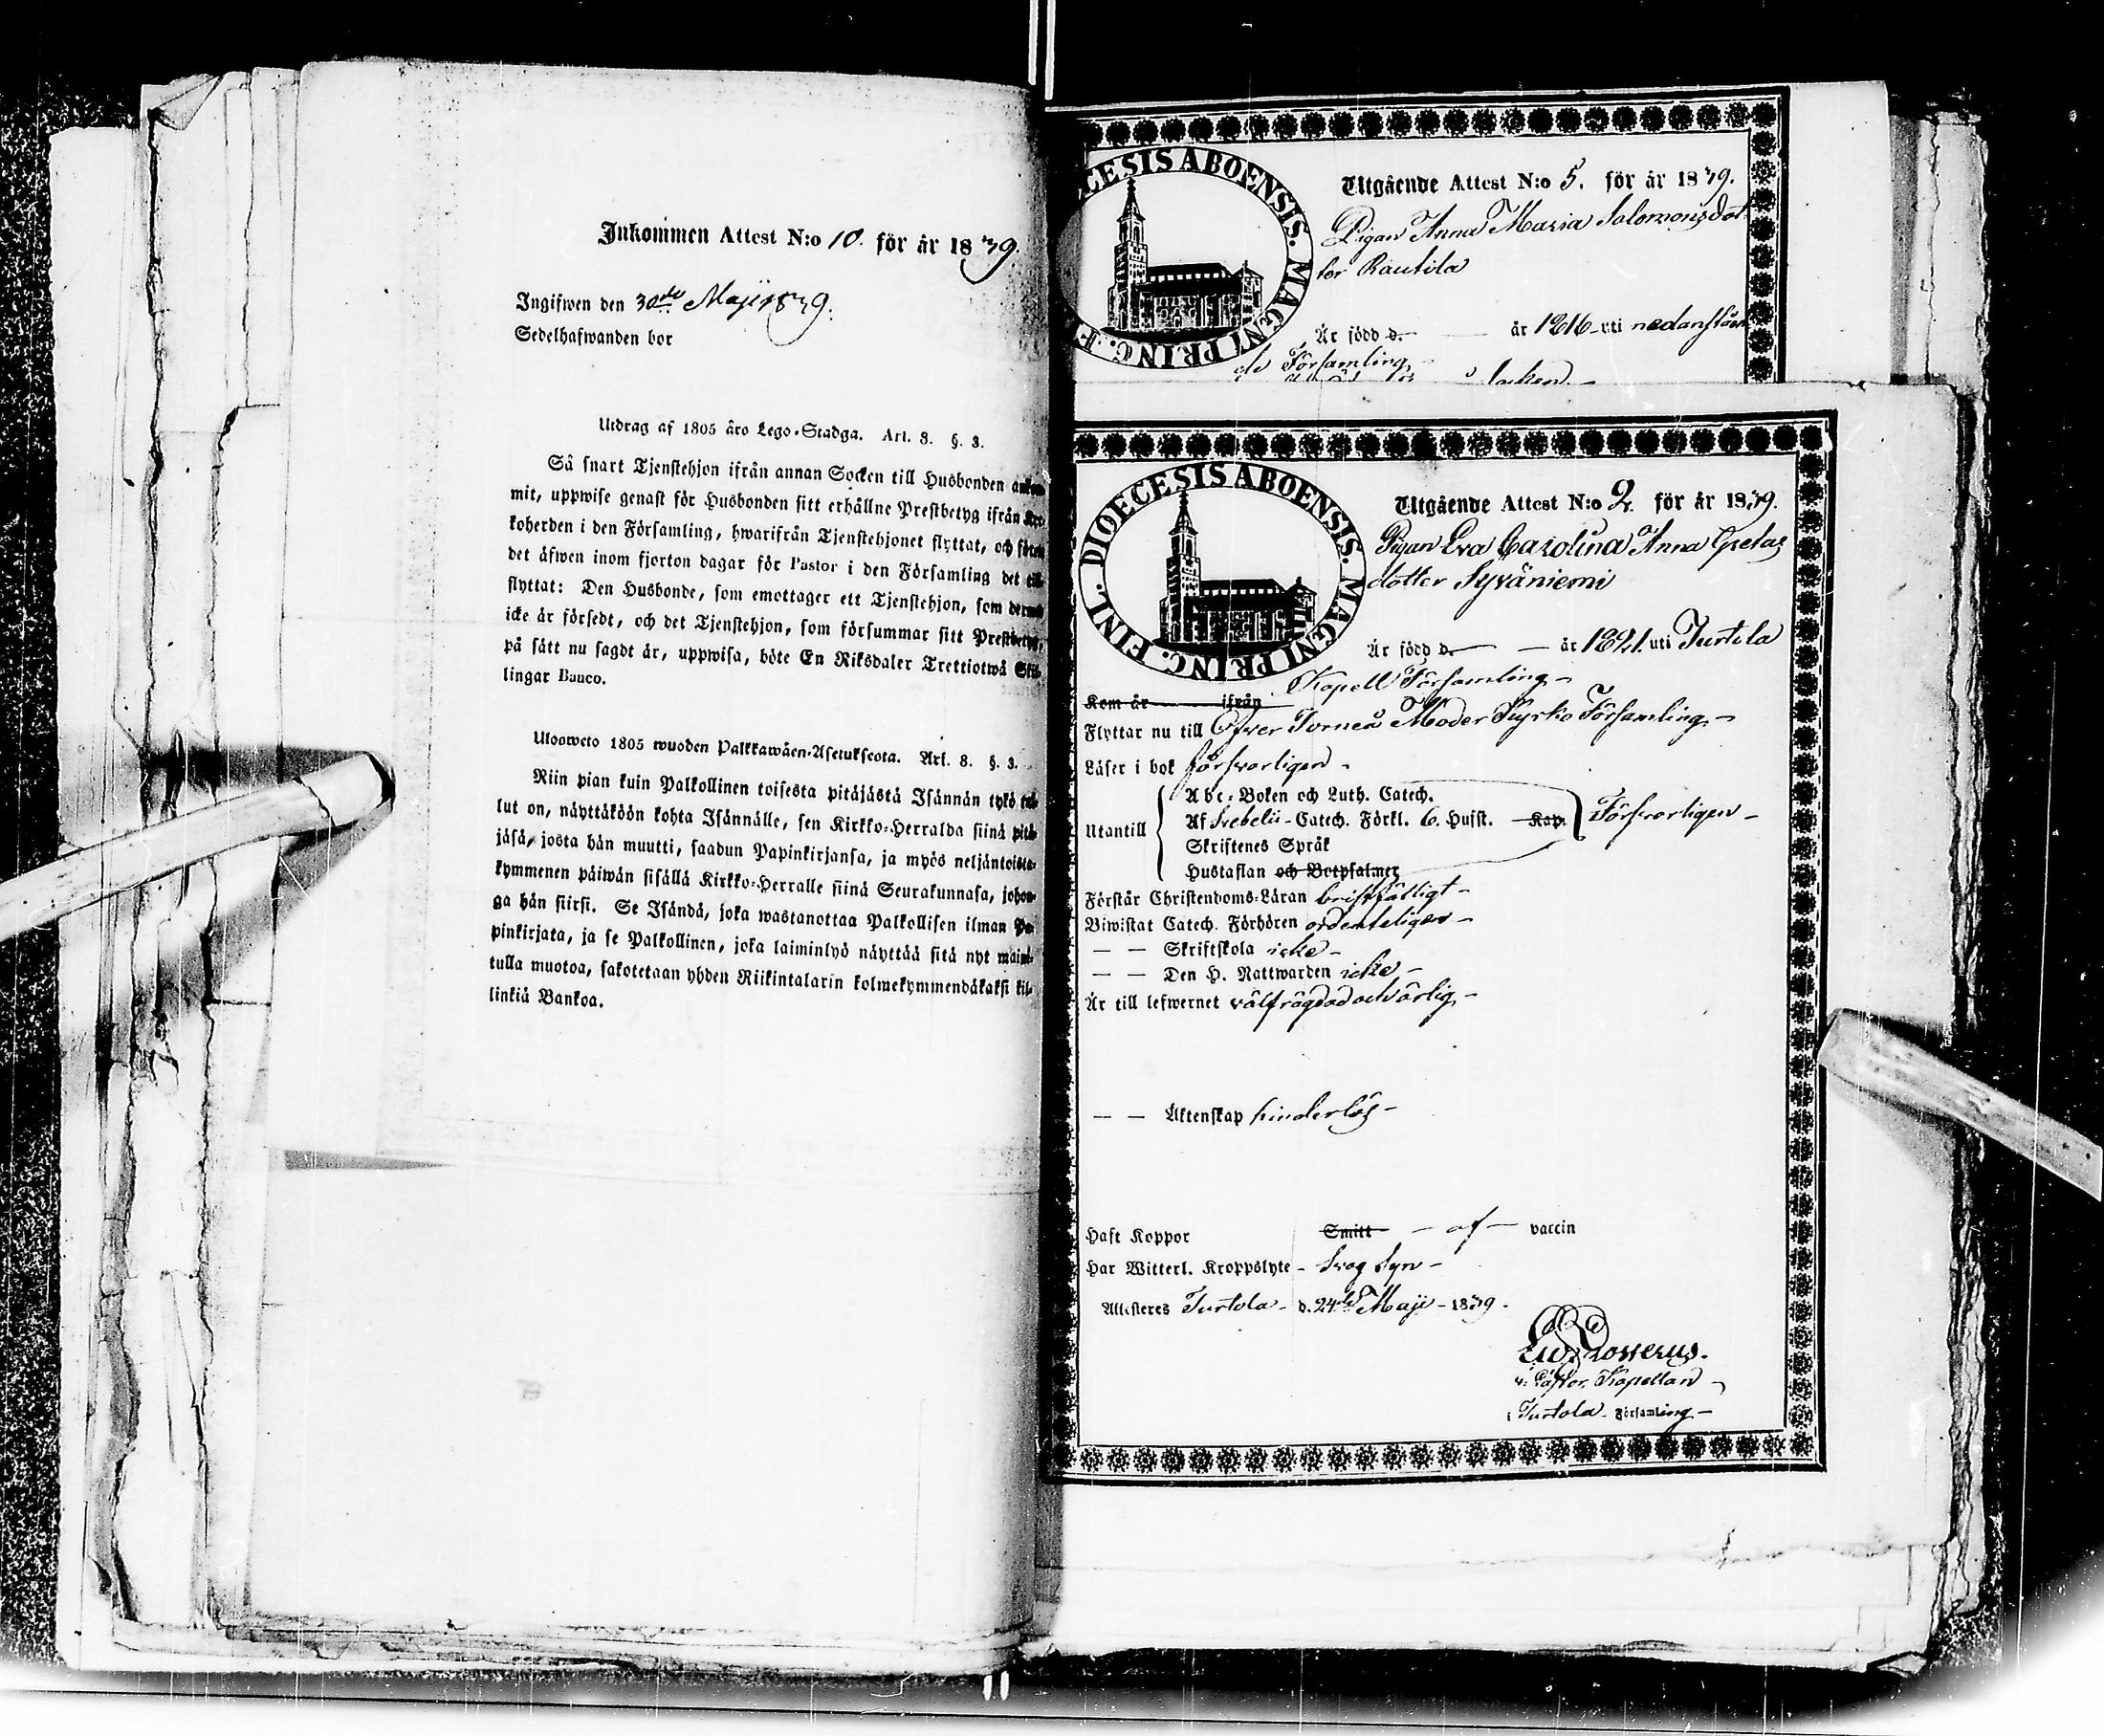 Inkommen Attest N:o 10. för år 1839.
Ingifwen den 30de Maji 1839.
Sedelhafwanden bor
Utdrag af 1805 åro Lego-Stadga. Art. 8. §. 3.
Så snart Tjenstehjon ifrån annan Socken till Husbonden
mit, uppwise genast för Husbonden sitt erhållne Prestbetyg ifrån
koherden i den Församling, hwarifrån Tjenstehjonet flyttat, och
det äfwen inom fjorton dagar för Pastor i den Församling det
flyttat: Den Husbonde, som emottager ett Tjenstehjon, som
icke är försedt, och det Tjenstehjon, som försummar sitt Prestbetyg,
på sätt nu sagdt är, uppwisa, böte En Riksdaler Trettiotwå
lingar Banco.
Ulosweto 1805 wuoden Palkkawäen-Asetuksesta. Art. 8. §. 3.
Niin pian kuin Palkollinen toisesta pitäjästä Isännän tykö
lut on, näyttäköön kohta Isännälle, sen Kirkko-Herralda siinä
jäsä, josta hän muutti, saadun Papinkirjansa, ja myös neljäntoista-
kymmenen päiwän sisällä Kirkko-Herralle siinä Seurakunnasa, johon-
ga hän siirsi. Se Isändä, joka wastanottaa Palkollisen ilman
pinkirjata, ja se Palkollinen, joka laiminlyö näyttää sitä nyt
tulla muotoa, sakotetaan yhden Riikintalarin kolmekymmendäkaksi
linkiä Bankoa.
DIOECESIS ABOENSIS. MAGNI PRINC. F
Utgående Attest N:o 5. för år 1839.
Pigan Anna Maria Salomonsdot
ter Rautila
Är född d. — år 1816 uti nedanståen
de Församling
DIOECESIS ABOENSIS. MAGNI PRINC. FINL.
Utgående Attest N:o 2. för år 1839.
Pigan Eva Carolina Anna Gretas
dotter Syväniemi
Är född d. — år 1821. uti Turtola
Kapell Församling –
Kom år ifrån
Flyttar nu till Öfver Torneå Moder Kyrko Församling –
Läser i bok försvarligen –
Utantill
Abc-Boken och Luth. Catech.
Af Svebelii-Catech. Förkl. 6. Hufst. Kap.
Skriftenes Språk
Hustaflan och Botpsalmer
Försvarligen –
Förstår Christendoms-Läran bristfälligt –
Biwistat Catech. Förhören ordenteligen –
— — Skriftskola icke –
— — Den H. Nattwarden icke –
Är till lefwernet välfrägdad och ärlig –
— — Äktenskap hinderlös –
Haft Koppor Smitt – af – vaccin
Har Witterl. Kroppslyte – Svag Syn –
Attesteres Turtola – d. 24de Maji – 1839.
v: Pastor, Kapellan
i Turtola – Församling –